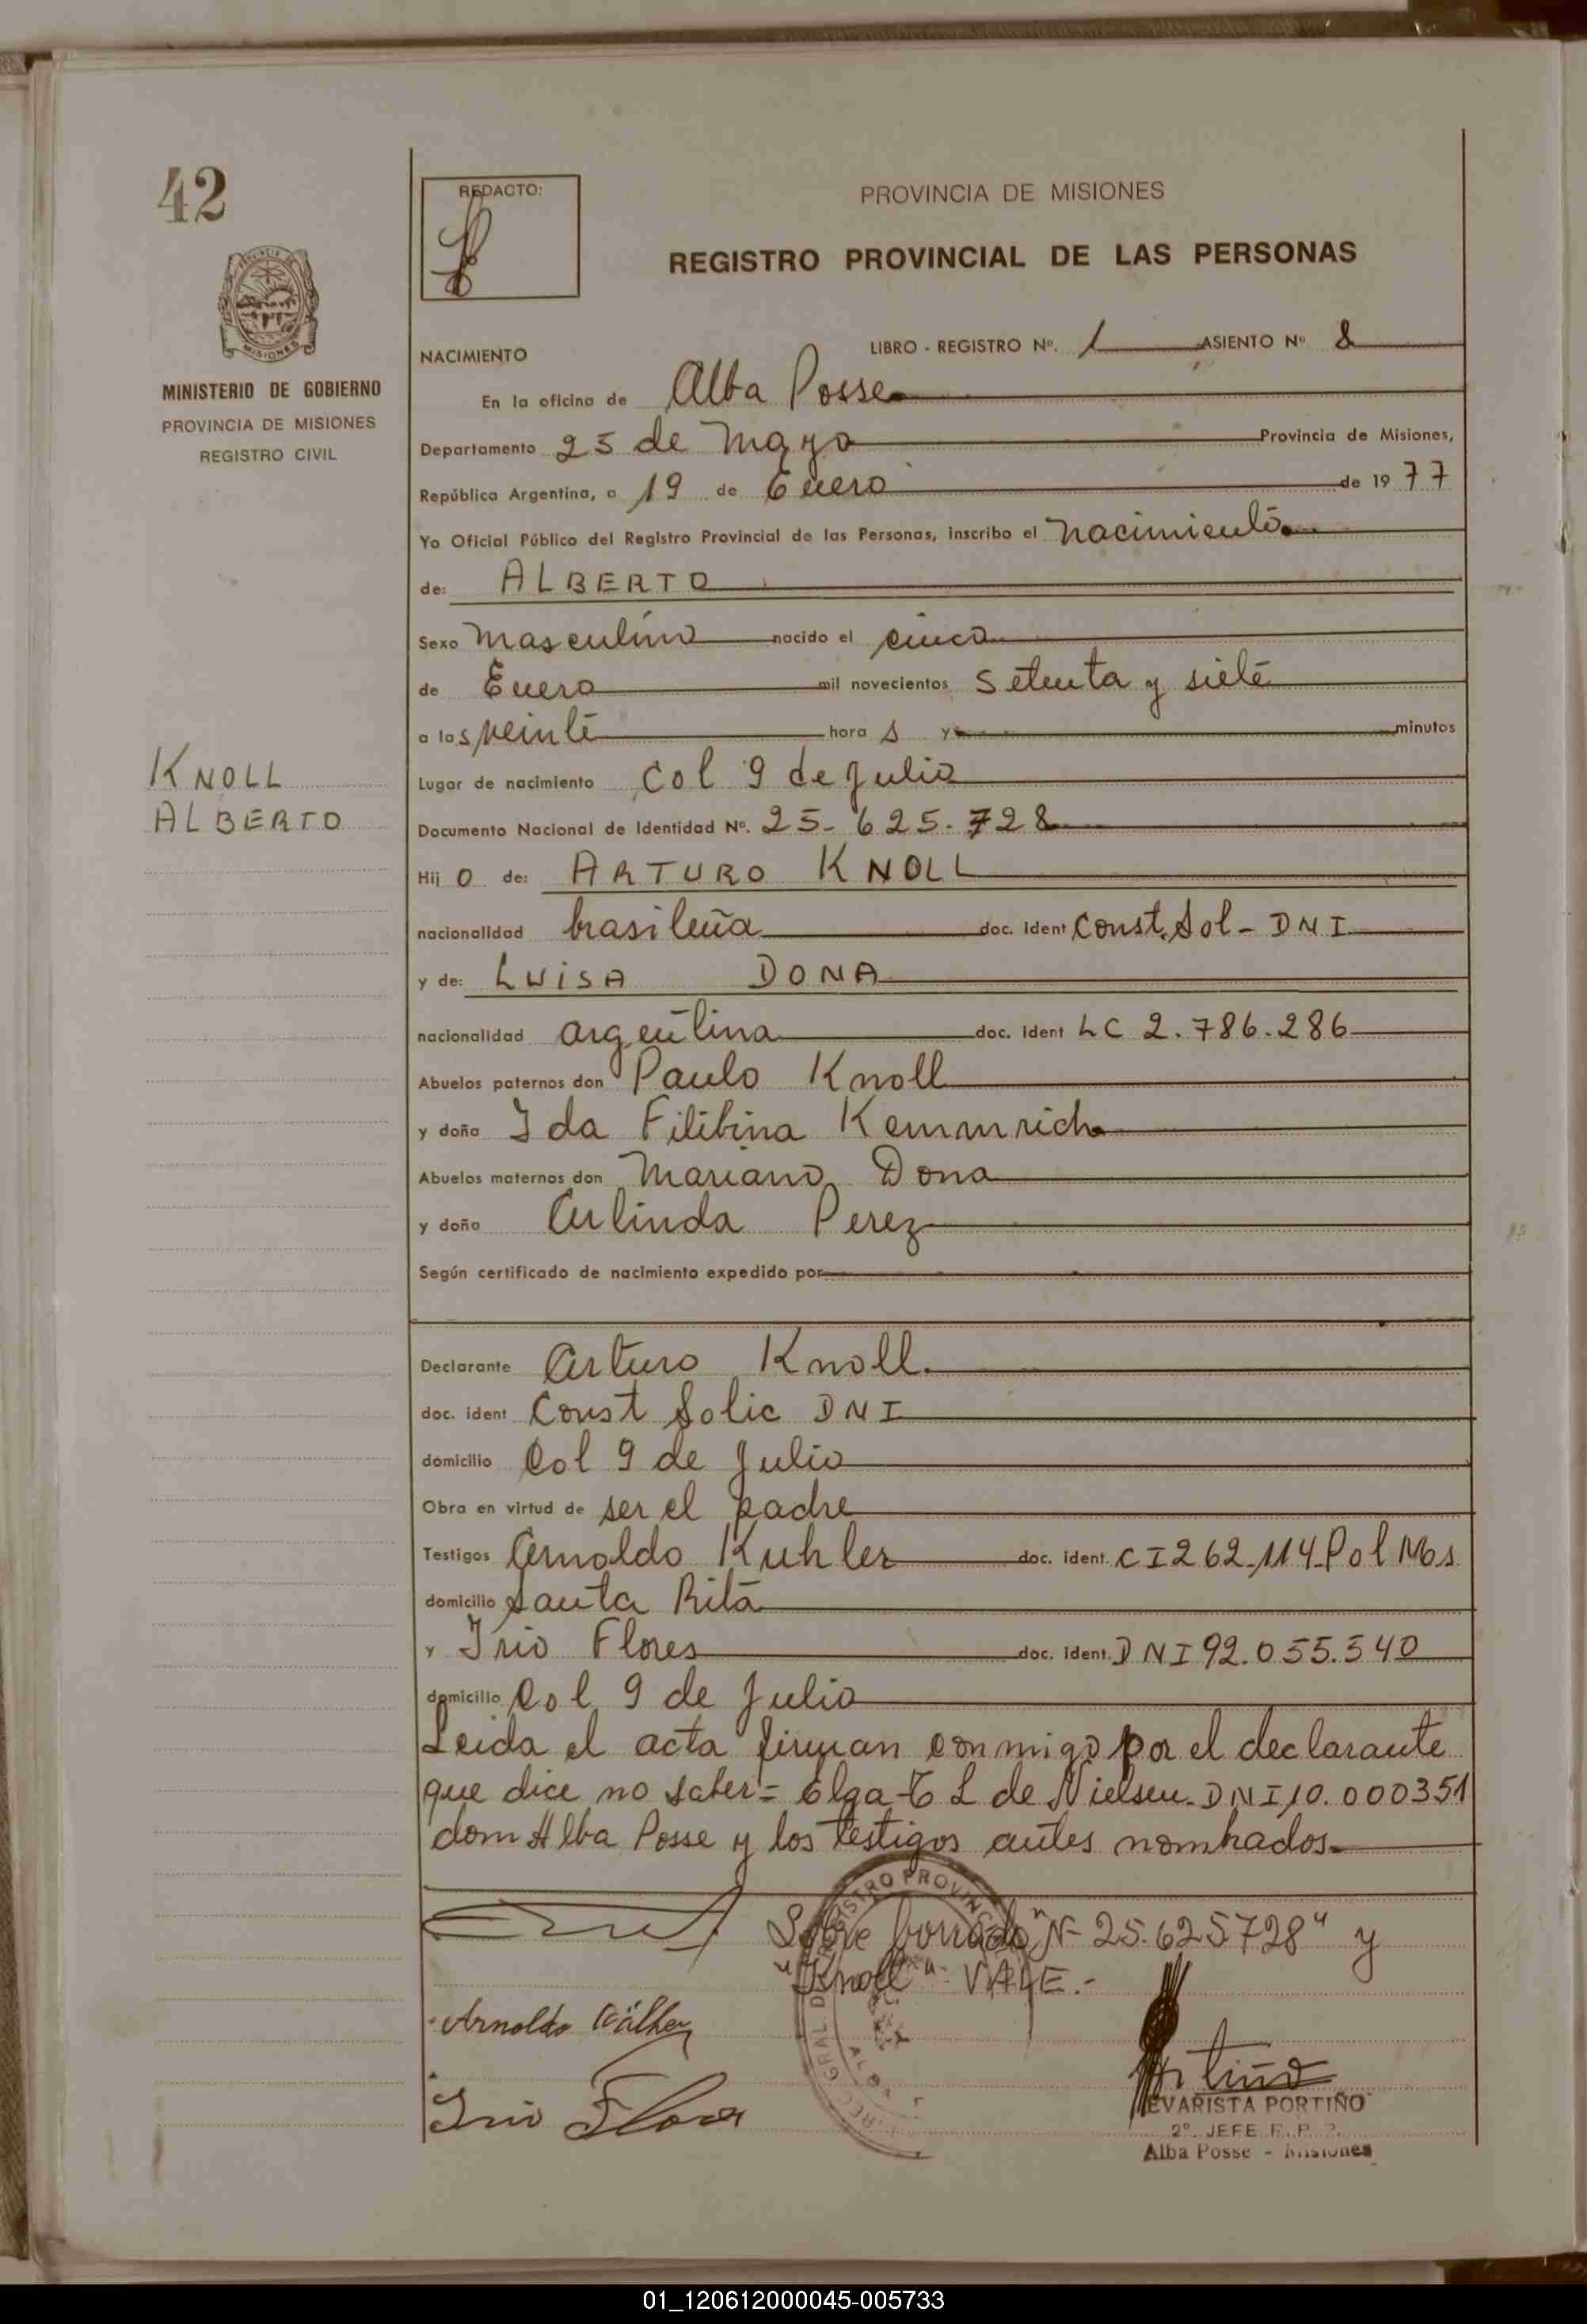 42
REDACTO:
PROVINCIA DE MISIONES
REGISTRO PROVINCIAL DE LAS PERSONAS
MISIONES
MINISTERIO DE GOBIERNO
PROVINCIA DE MISIONES
REGISTRO CIVIL
NACIMIENTO
LIBRO - REGISTRO Nº. 1 ASIENTO Nº 8
En la oficina de Alba Posse
Departamento 25 de Mayo Provincia de Misiones,
República Argentina, a 19 de Enero de 1977
Yo Oficial Público del Registro Provincial de las Personas, inscribo el nacimiento
de: ALBERTO
Sexo masculino nacido el cinco
de Enero mil novecientos setenta y siete
a las veinte hora s y minutos
KNOLL
ALBERTO
Lugar de nacimiento Col 9 de Julio
Documento Nacional de Identidad Nº. 25-625-728
Hij o de: ARTURO KNOLL
nacionalidad brasileña doc. ident Const. Sol - DNI
y de: LUISA DONA
nacionalidad argentina doc. ident LC 2.786.286
Abuelos paternos don Paulo Knoll
y doña Ida Filibina Kemmrich
Abuelos maternos don Mariano Dona
y doña Arlinda Perez
Según certificado de nacimiento expedido por
Declarante Arturo Knoll.
doc. ident Const Solic DNI
domicilio Col 9 de Julio
Obra en virtud de ser el padre
Testigos Arnoldo Kuhler doc. ident. CI 262.114 Pol Mos
domicilio Santa Rita
y Irio Flores doc. ident. DNI 92.055.540
domicilio Col 9 de Julio
Leida el acta firman conmigo por el declarante
que dice no saber = Elga T L de Nielsen DNI 10.000351
dom Alba Posse y los testigos antes nombrados.
Sobre borrado "N- 25.625728" y
"Knoll" - VALE.-
Arnoldo
Irio Flores
EVARISTA PORTIÑO
2º. JEFE R. P. P.
Alba Posse - Misiones
01_120612000045-005733